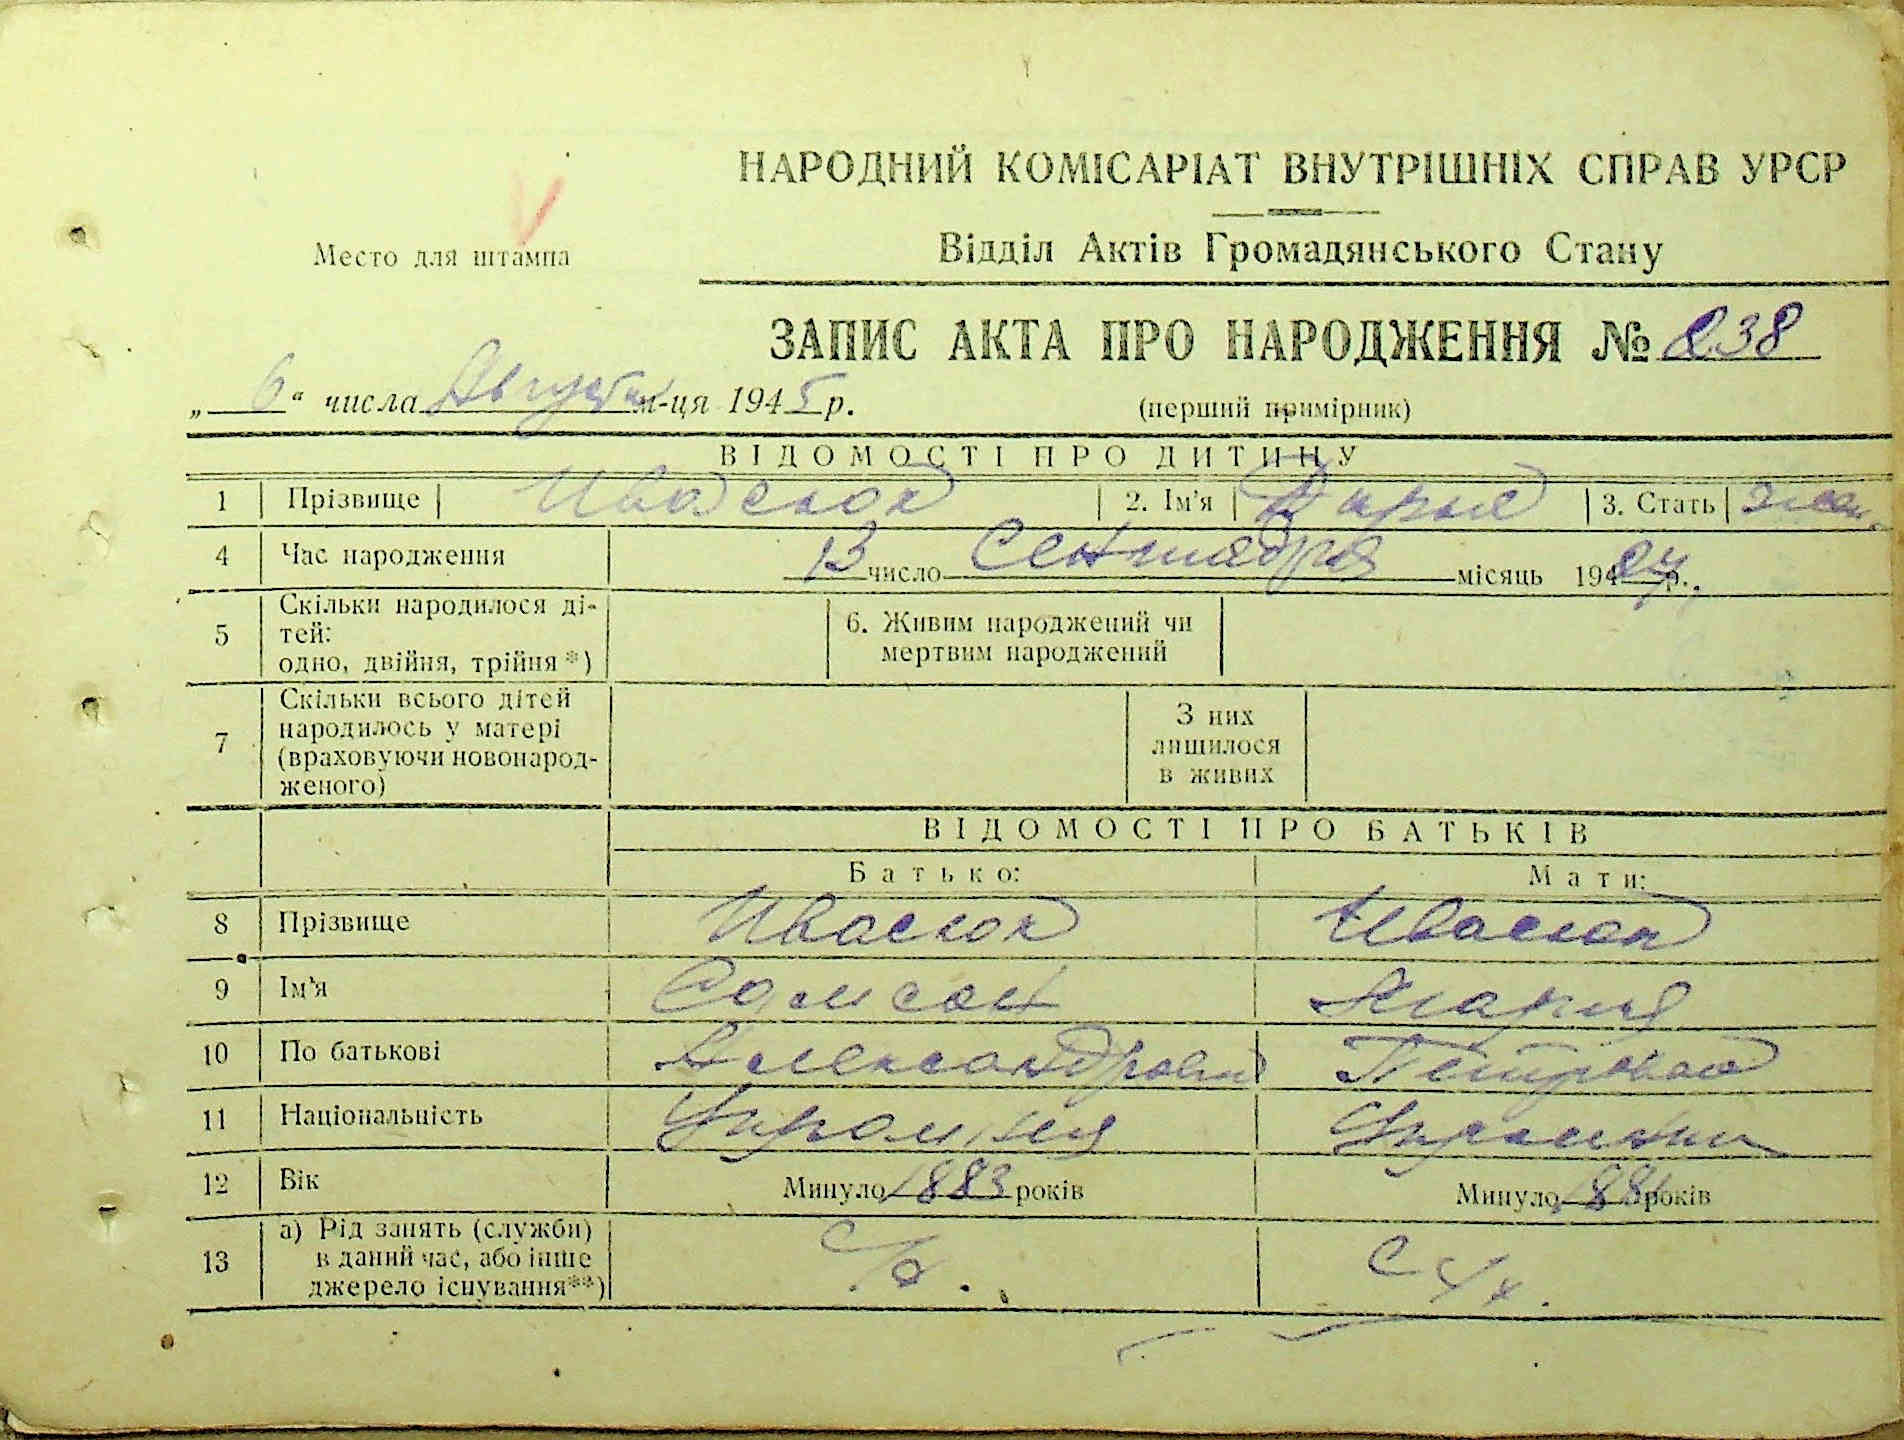 НАРОДНИЙ КОМІСАРІАТ ВНУТРІШНІХ СПРАВ УРСР
Место для штампа
Відділ Актів Громадянського Стану
ЗАПИС АКТА ПРО НАРОДЖЕННЯ № 838
„ 6 “ числа Августа м-ця 1945 р.
(перший примірник)
ВІДОМОСТІ ПРО ДИТИНУ
1 Прізвище Ивасюк 2. Ім'я Дарья 3. Стать жен.
4 Час народження 13 число Сентября місяць 194 р.
5 Скільки народилося ді-
тей:
одно, двійня, трійня *)
6. Живим народжений чи
мертвим народжений
7 Скільки всього дітей
народилось у матері
(враховуючи новонарод-
женого)
З них
лишилося
в живих
ВІДОМОСТІ ПРО БАТЬКІВ
Батько: Мати:
8 Прізвище Ивасюк Ивасюк
9 Ім'я Самсон Мария
10 По батькові Александрович Петровна
11 Національність
12 Вік Минуло 1883 років Минуло 1881 років
13 а) Рід занять (служби)
в даний час, або інше
джерело існування**)
с/х. с/х.